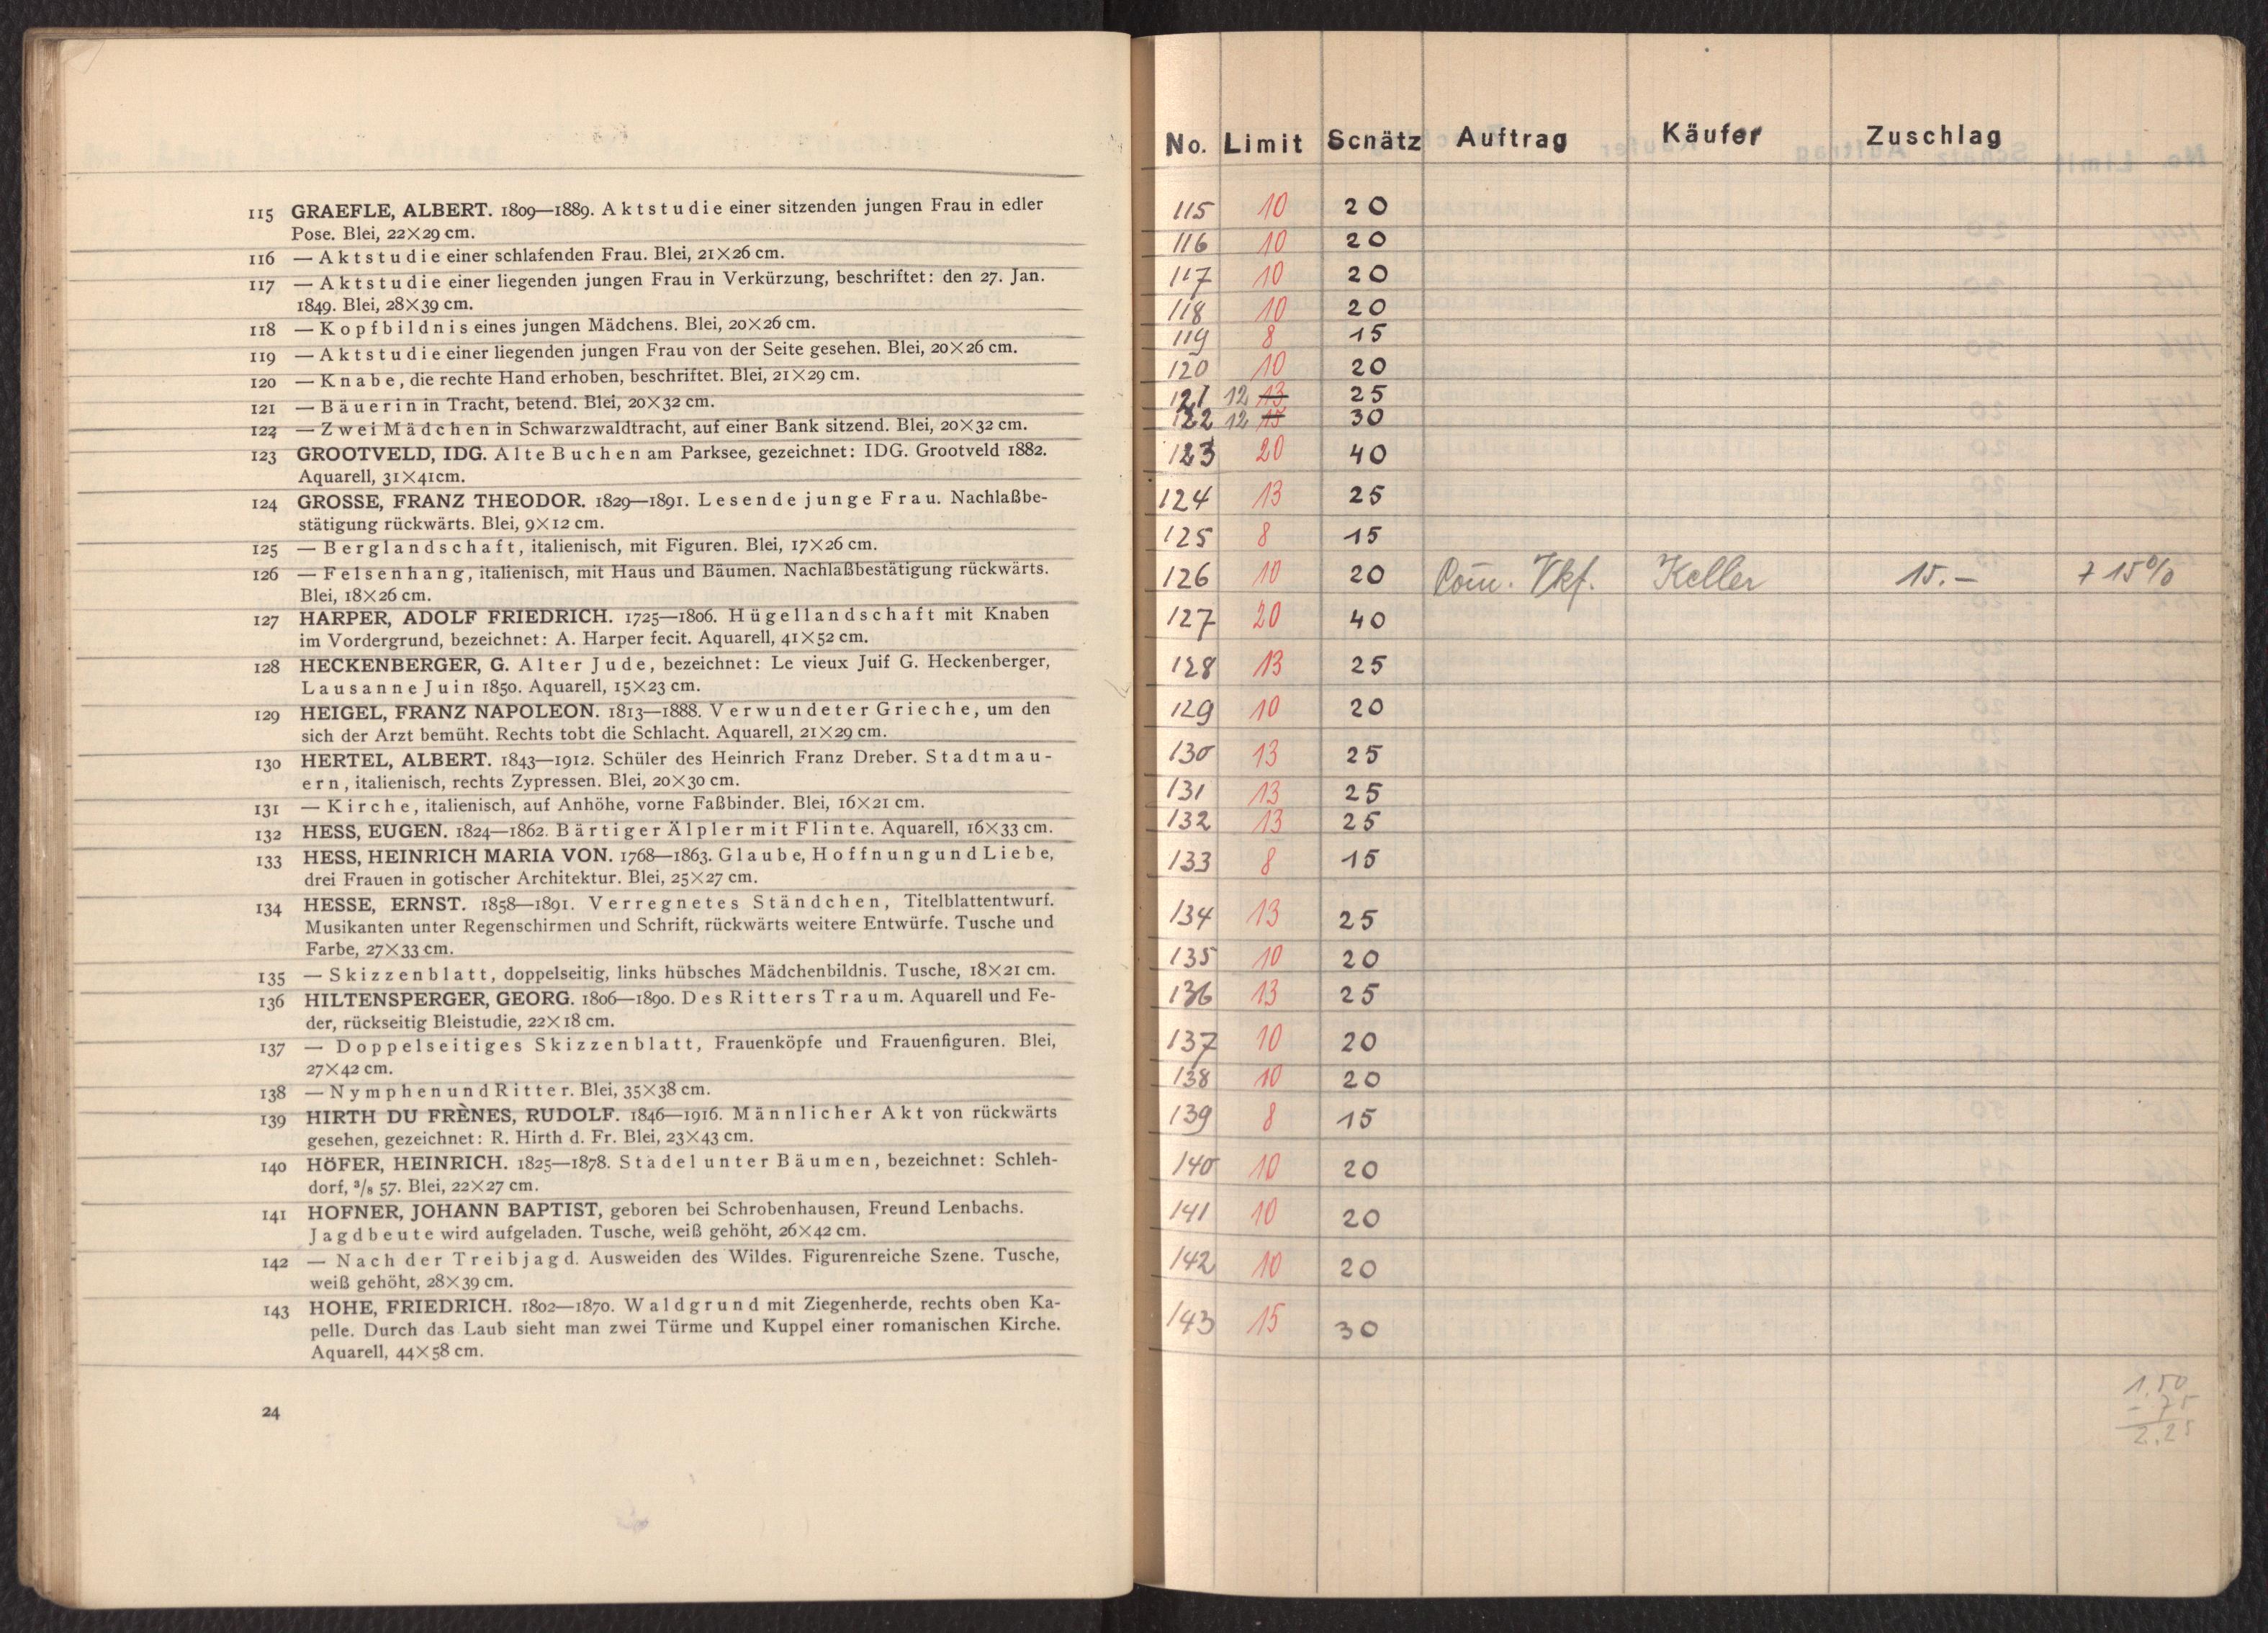 115 GRAEFLE, ALBERT. 1809—1889. Aktstudie einer sitzenden jungen Frau in edler
Pose. Blei, 22×29 cm.
116 — Aktstudie einer schlafenden Frau. Blei, 21×26 cm.
117 — Aktstudie einer liegenden jungen Frau in Verkürzung, beschriftet: den 27. Jan.
1849. Blei, 28×39 cm.
118 — Kopfbildnis eines jungen Mädchens. Blei, 20×26 cm.
119 — Aktstudie einer liegenden jungen Frau von der Seite gesehen. Blei, 20×26 cm.
120 — Knabe, die rechte Hand erhoben, beschriftet. Blei, 21×29 cm.
121 — Bäuerin in Tracht, betend. Blei, 20×32 cm.
122 — Zwei Mädchen in Schwarzwaldtracht, auf einer Bank sitzend. Blei, 20×32 cm.
123 GROOTVELD, IDG. Alte Buchen am Parksee, gezeichnet: IDG. Grootveld 1882.
Aquarell, 31×41cm.
124 GROSSE, FRANZ THEODOR. 1829—1891. Lesende junge Frau. Nachlaßbe-
stätigung rückwärts. Blei, 9×12 cm.
125 — Berglandschaft, italienisch, mit Figuren. Blei, 17×26 cm.
126 — Felsenhang, italienisch, mit Haus und Bäumen. Nachlaßbestätigung rückwärts.
Blei, 18×26 cm.
127 HARPER, ADOLF FRIEDRICH. 1725—1806. Hügellandschaft mit Knaben
im Vordergrund, bezeichnet: A. Harper fecit. Aquarell, 41×52 cm.
128 HECKENBERGER, G. Alter Jude, bezeichnet: Le vieux Juif G. Heckenberger,
Lausanne Juin 1850. Aquarell, 15×23 cm.
129 HEIGEL, FRANZ NAPOLEON. 1813—1888. Verwundeter Grieche, um den
sich der Arzt bemüht. Rechts tobt die Schlacht. Aquarell, 21×29 cm.
130 HERTEL, ALBERT. 1843—1912. Schüler des Heinrich Franz Dreber. Stadtmau-
ern, italienisch, rechts Zypressen. Blei, 20×30 cm.
131 — Kirche, italienisch, auf Anhöhe, vorne Faßbinder. Blei, 16×21 cm.
132 HESS, EUGEN. 1824—1862. Bärtiger Älpler mit Flinte. Aquarell, 16×33 cm.
133 HESS, HEINRICH MARIA VON. 1768—1863. Glaube, Hoffnung und Liebe,
drei Frauen in gotischer Architektur. Blei, 25×27 cm.
134 HESSE, ERNST. 1858—1891. Verregnetes Ständchen, Titelblattentwurf.
Musikanten unter Regenschirmen und Schrift, rückwärts weitere Entwürfe. Tusche und
Farbe, 27×33 cm.
135 — Skizzenblatt, doppelseitig, links hübsches Mädchenbildnis. Tusche, 18×21 cm.
136 HILTENSPERGER, GEORG. 1806—1890. Des Ritters Traum. Aquarell und Fe-
der, rückseitig Bleistudie, 22×18 cm.
137 — Doppelseitiges Skizzenblatt, Frauenköpfe und Frauenfiguren. Blei,
27×42 cm.
138 — Nymphen und Ritter. Blei, 35×38 cm.
139 HIRTH DU FRÈNES, RUDOLF. 1846—1916. Männlicher Akt von rückwärts
gesehen, gezeichnet: R. Hirth d. Fr. Blei, 23×43 cm.
140 HÖFER, HEINRICH. 1825—1878. Stadel unter Bäumen, bezeichnet: Schleh-
dorf, 3/8 57. Blei, 22×27 cm.
141 HOFNER, JOHANN BAPTIST, geboren bei Schrobenhausen, Freund Lenbachs.
Jagdbeute wird aufgeladen. Tusche, weiß gehöht, 26×42 cm.
142 — Nach der Treibjagd. Ausweiden des Wildes. Figurenreiche Szene. Tusche,
weiß gehöht, 28×39 cm.
143 HOHE, FRIEDRICH. 1802—1870. Waldgrund mit Ziegenherde, rechts oben Ka-
pelle. Durch das Laub sieht man zwei Türme und Kuppel einer romanischen Kirche.
Aquarell, 44×58 cm.
24
No. Limit Schätz Auftrag Käufer Zuschlag
115 10 20
116 10 20
117 10 20
118 10 20
119 8 15
120 10 20
121 12 13 25
122 12 15 30
123 20 40
124 13 25
125 8 15
126 10 20 Com. Vkf. Keller 15.— + 15%
127 20 40
128 13 25
129 10 20
130 13 25
131 13 25
132 13 25
133 8 15
134 13 25
135 10 20
136 13 25
137 10 20
138 10 20
139 8 15
140 10 20
141 10 20
142 10 20
143 15 30
1.50
-.75
2.25